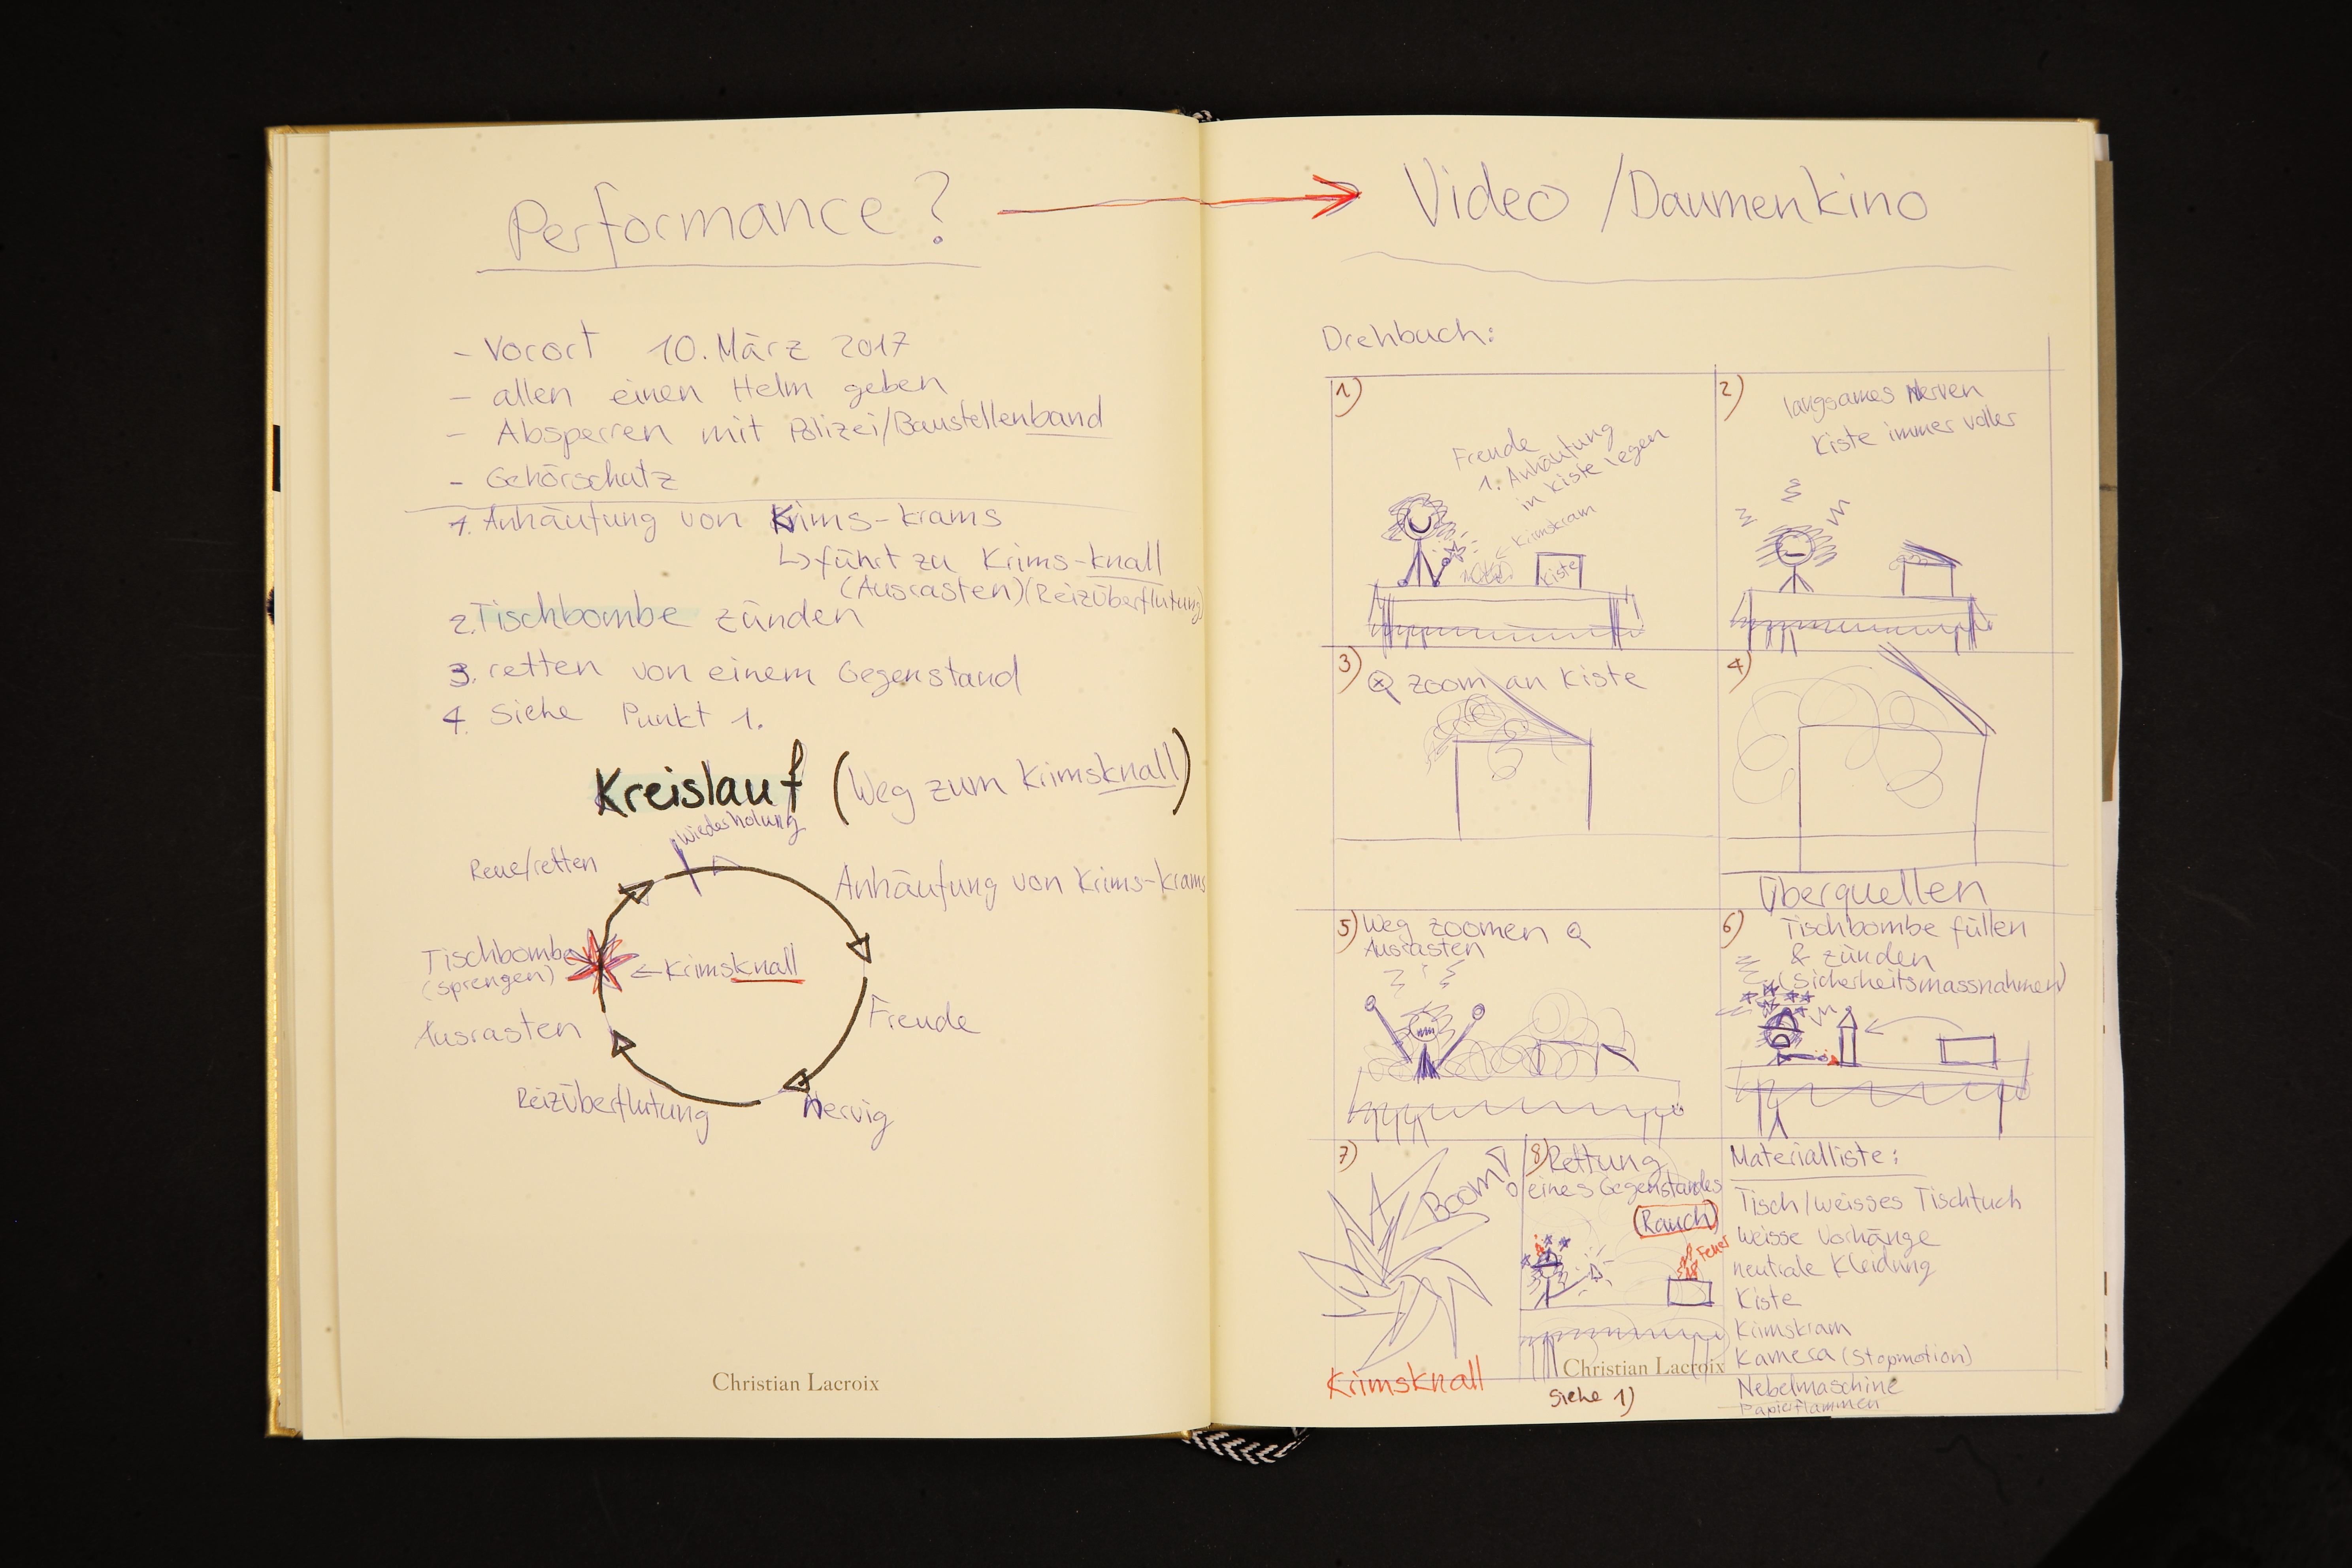 Performance?
- Vorort 10. März 2017
- allen einen Helm geben
- Absperren mit Polizei/Baustellenband
- Gehörschutz
1. Anhäufung von Krims-krams
↳ führt zu Krims-knall
(Ausrasten)(Reizüberflutung)
2. Tischbombe zünden
3. retten von einem Gegenstand
4 Siehe Punkt 1.
Kreislauf (Weg zum Krimsknall)
Wiederholung
Reue/retten
Anhäufung von Krims-krams
Tischbombe
(sprengen)
← Krimsknall
Freude
Ausrasten
Reizüberflutung
Nervig
Christian Lacroix
Video / Daumenkino
Drehbuch:
1)
Freude
1. Anhäufung
in Kiste legen
← Krimskram
Kiste
2)
langsames Nerven
Kiste immer voller
3) zoom an Kiste
4)
Überquellen
5) Weg zoomen
Ausrasten
6) Tischbombe füllen
& zünden
(Sicherheitsmassnahmen)
7)
BOOM!
Krimsknall
8) Rettung
eines Gegenstandes
(Rauch)
Feuer
Christian Lacroix
Siehe 1)
Materialliste:
Tisch/weisses Tischtuch
Weisse Vorhänge
neutrale Kleidung
Kiste
Krimskram
Kamera (Stopmotion)
Nebelmaschine
Papierflammen